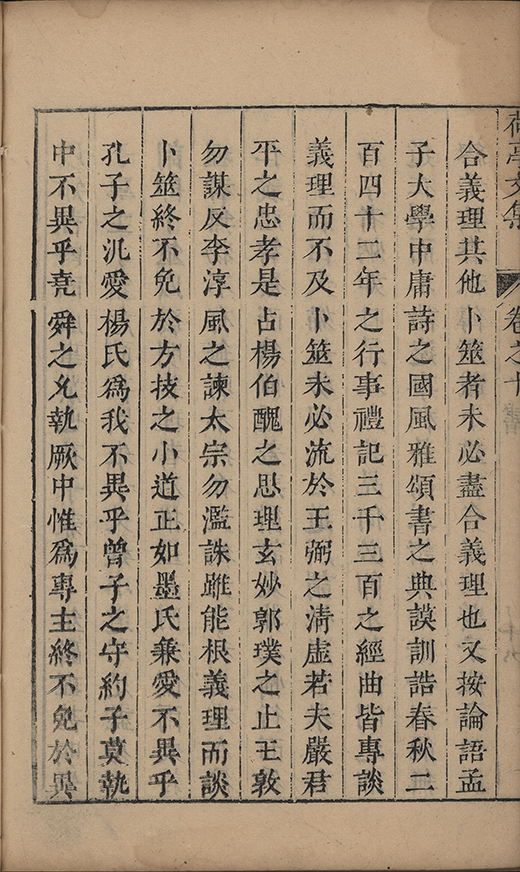 荷亭文集 卷之十
合義理其他卜筮者未必盡合義理也又按論語孟
子大學中庸詩之國風雅頌書之典謨訓誥春秋二
百四十二年之行事禮記三千三百之經曲皆專談
義理而不及卜筮未必流於王弼之清虛若夫嚴君
平之忠孝是占楊伯醜之思理玄妙郭璞之止王敦
勿謀反李淳風之諫太宗勿濫誅雖能根義理而談
卜筮終不免於方技之小道正如墨氏兼愛不異乎
孔子之汎愛楊氏爲我不異乎曾子之守約子莫執
中不異乎堯舜之允執厥中惟爲專主終不免於異